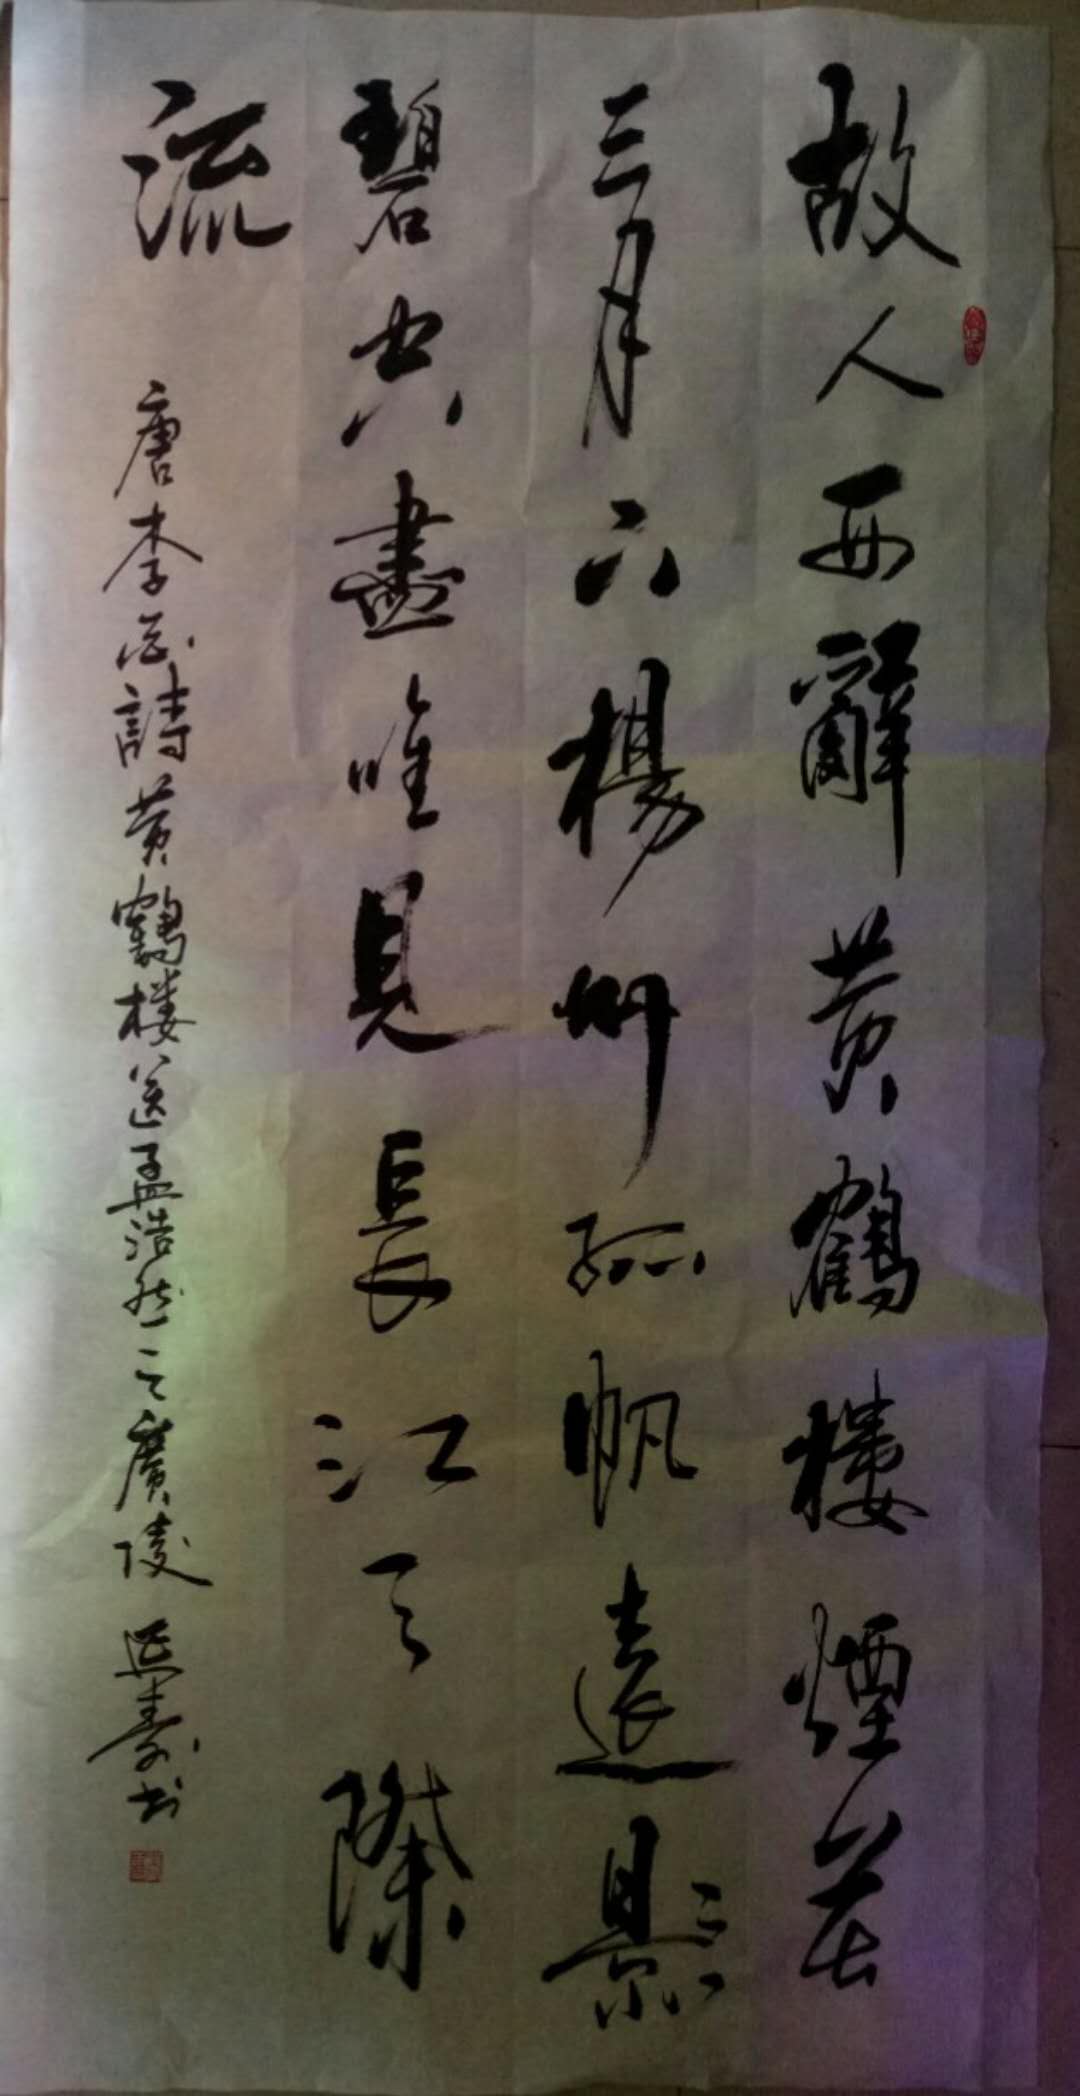 故人西辭黄鶴樓煙花
三月下楊州孤帆遠影
碧空盡唯見長江天際
流
唐李白詩黄鶴楼送孟浩然之廣陵 延壽书